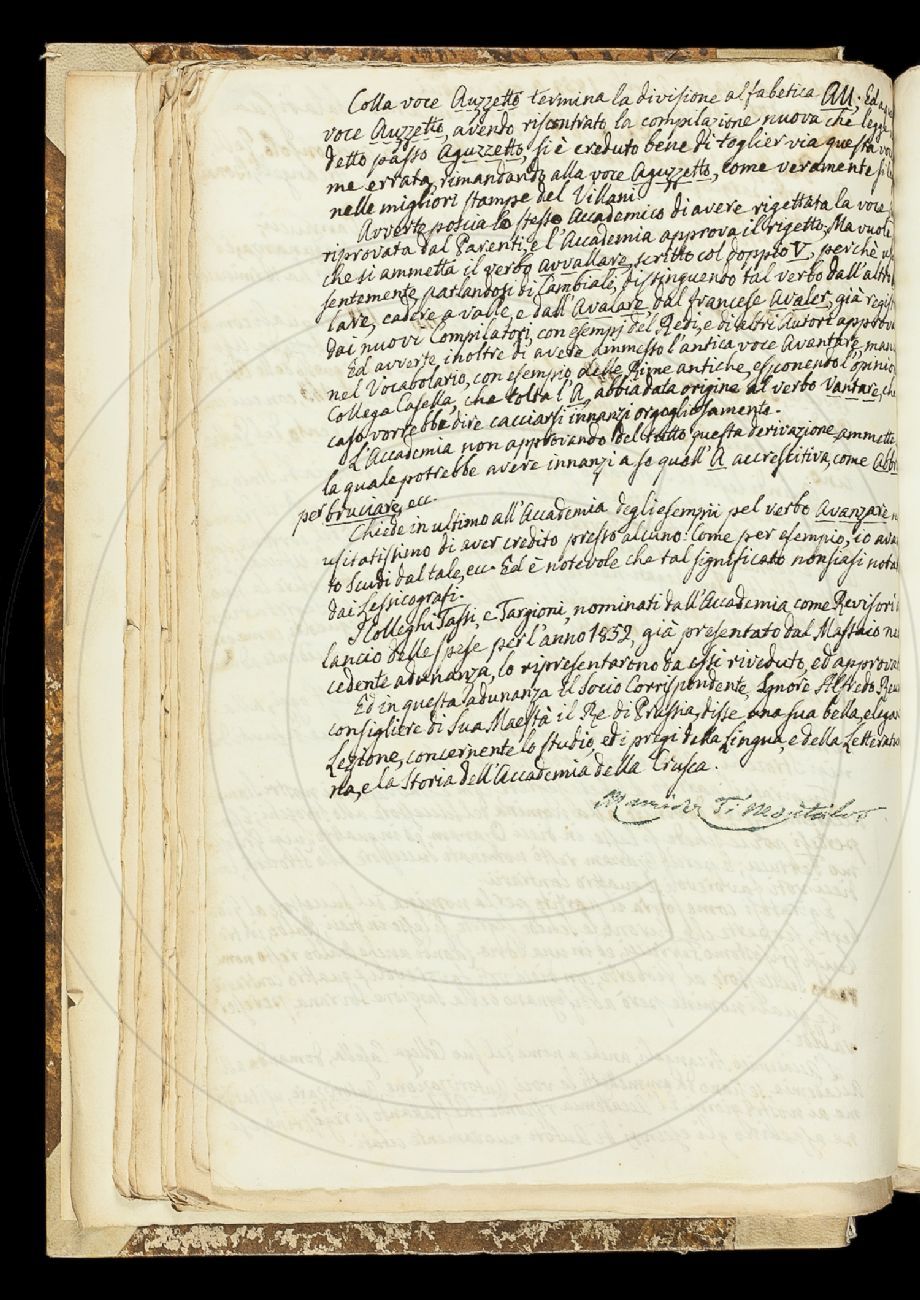 Colla voce Auzzetto termina la divisione alfabetica AU. Ed
voce Auzzetto, avendo riscontrato la compilazione nuova che legge
detto passo aguzzetto, si è creduto bene di toglier via questa vo
me errata, rimandando alla voce Aguzzetto, come veramente si
nelle migliori stampe del Villani
Avverte poscia lo stesso Accademico di avere rigettata la voce
riprovata dal Parenti; e l'Accademia approva il rigetto. Ma vuole
che si ammetta il verbo avvallare, scritto col doppio V, perchè
sentemente, parlandosi di Cambiale, distinguendo tal verbo dall'altro
lare, cadere a valle, e dall'Avalare dal francese Avaler, già regis
dai nuovi Compilatori, con esempj del Redi, e di altri Autori approva
Ed avverte inoltre di avere ammesso l'antica voce Avantare, man
nel Vocabolario, con esempio delle Rime antiche, esponendo l'opinio
Collega Casella, che tolta l'A, abbia data origine al verbo Vantare, che
caso vorrebbe dire cacciarsi innanzi orgogliosamente.
L'Accademia non approvando del tutto questa derivazione, ammette
la quale potrebbe avere innanzi a se quell'A accrescitiva, come Abb
per bruciare, ecc.
Chiede in ultimo all'Accademia degli esempii pel verbo Avanzare n
usitatissimo di aver credito presso alcuno: Come per esempio, io ava
to Scudi dal tale, ecc. Ed è notevole che tal significato non siasi nota
dai Lessicografi.
I Colleghi Tassi, e Targioni, nominati dall'Accademia come Revisori
lancio delle spese per l'anno 1852, già presentato dal Massaio ne
cedente adunanza, lo ripresentarono da essi riveduto, ed approvat
Ed in questa adunanza il Socio Corrispondente, Signore Alfredo Reu
consigliere di Sua Maestà il Re di Prussia, disse una sua bella, elega
Lezione, concernente lo studio, ed i pregi della Lingua, e della Letteratu
na, e la Storia dell'Accademia della Crusca.